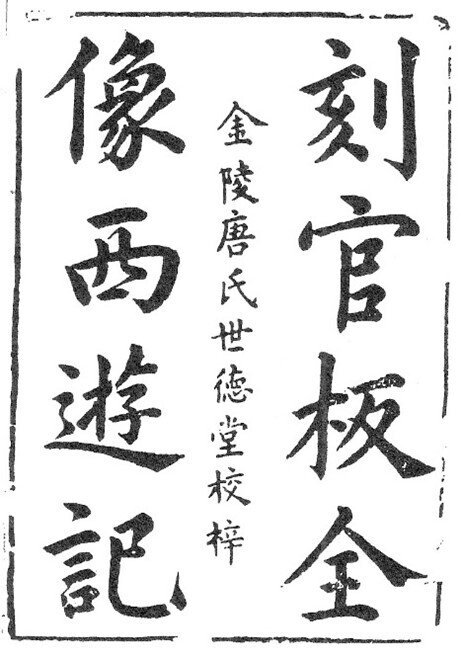 刻官板全
金陵唐氏世德堂校梓
像西遊記